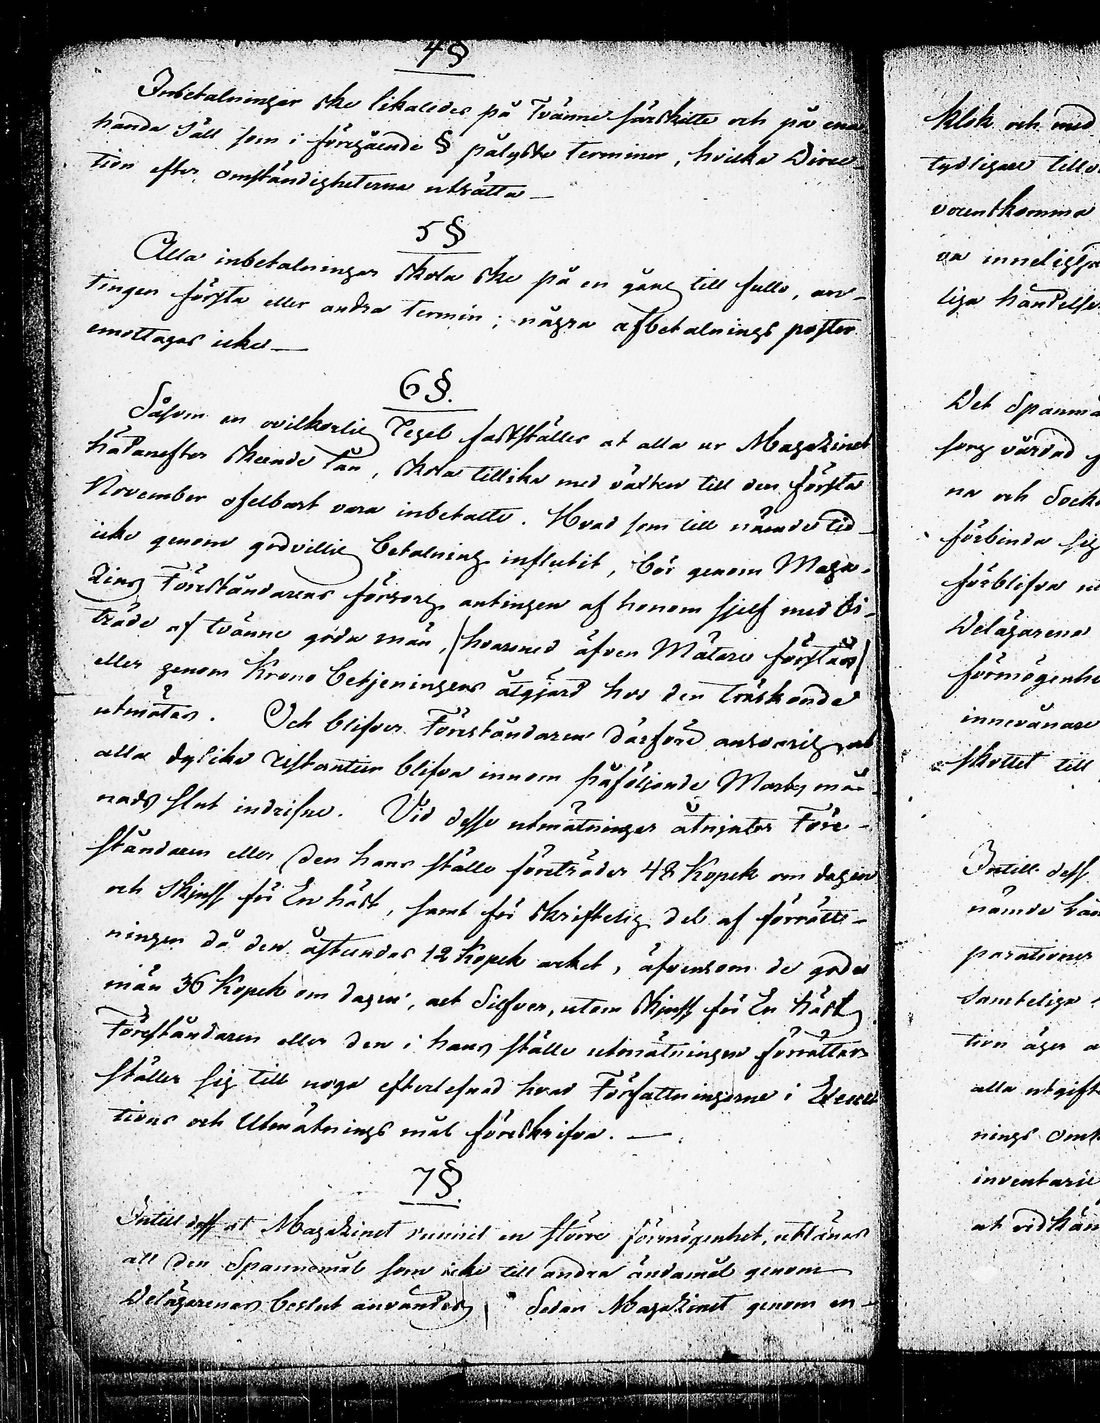 4 §
Inbetalningar ske likaledes på Tvänne särskilte och på ena
handa sätt som i föregående § pålyste terminer, hvilka Direc-
tion efter omständigheterna utsätta —
5 §
Alla inbetalningar skola ske på en gång till fullo, an-
tingen första eller andra termin; några afbetalnings poster
emottages icke —
6 §.
Såsom en ovilkorlig Regel fastställes at alla ur Magazinet
hädanefter skeende Lån, skola tillika med växten till den första
November ofelbart vara inbetalte. Hvad som till nämnde tid
icke genom godvillig betalning influtit, bör genom Maga-
Zins Föreståndarens försorg antingen af honom sjelf med bi-
träde af tvänne gode män, (hvarmed äfven Mätare förstås)
eller genom Krono betjeningens åtgjärd hos den tröskande
utmätas. Och blifver Föreståndaren därföre ansvarig, at
alla dylika restantier blifva innom påföljande Marty må-
nads slut indrifne. Vid desse utmätningar åtnjuter Före-
ståndaren eller den hans ställe företräder 48 Kopek om dagen
och skjuss för En häst, samt för skriftelig del af förrätt-
ningen då den åstundas 12 Kopek arket, äfvensom de gode
män 36 Kopek om dagen, alt Silfver, utom skjuss för En häst,
Föreståndaren eller den i hans ställe utmätningen förrättar
ställer sig till noga efterlefnad hvad Författningarne i Execu
tions och Utmätnings mål föreskrifva. —
7 §.
Intill dess at Magazinet vunnit en större förmögenhet, utlånas
all den Spannemål som icke till andra ändamål genom
Delägarenas beslut användes, Sedan Magazinet genom en-
klok och med
tydligare
förekomma
va inneligga
liga händelse
Det Spanmå
sorg vårdad
na och Sock
förbinda sig
förblifva
Delägarena
förmögenhe
innevånare
skottet till
Intill dess
nämde
parationer
samtelige
tion äger a
alla utgift
nings omk
inventarie
at vid hän